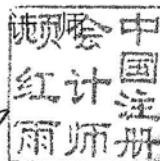 中国注册
会计师
红雨